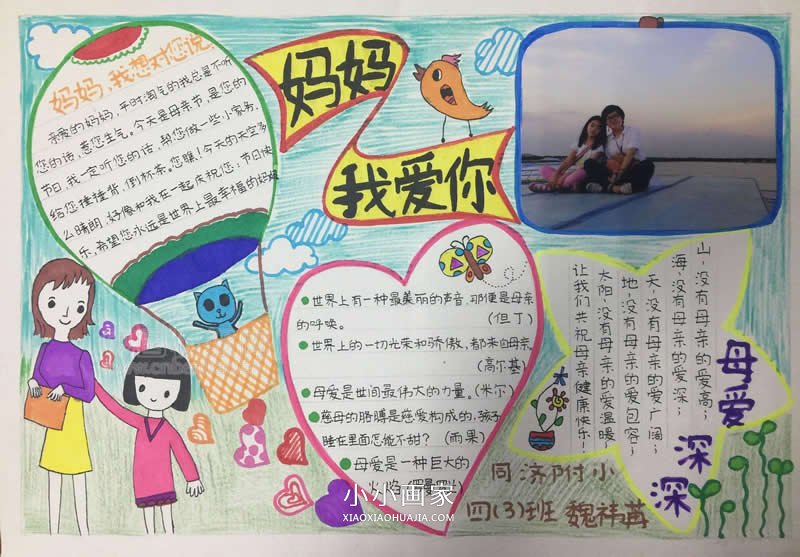 妈妈,我想对您说:
亲爱的妈妈,平时淘气的我总是不听
您的话,惹您生气。今天是母亲节,是您的
节日,我一定听您的话,帮您做一些小家务,
给您捶捶背,倒杯茶。您瞧!今天的天空多
么晴朗,好像和我在一起庆祝您:节日快
乐,希望您永远是世界上最幸福的妈妈
妈妈
我爱你
世界上有一种最美丽的声音,那便是母亲
的呼唤。 (但丁)
世界上的一切光荣和骄傲,都来自母亲。
(高尔基)
母爱是世间最伟大的力量。(米尔)
慈母的胳膊是慈爱构成的,孩子
睡在里面怎能不甜? (雨果)
母爱是一种巨大的
火焰
山,没有母亲的爱高;
海,没有母亲的爱深;
天,没有母亲的爱广阔;
地,没有母亲的爱包容;
太阳,没有母亲的爱温暖
让我们共祝母亲健康快乐!
母爱
深深
同济附小
四(3)班 魏祥
小小画家
XIAOXIAOHUAJIA.COM